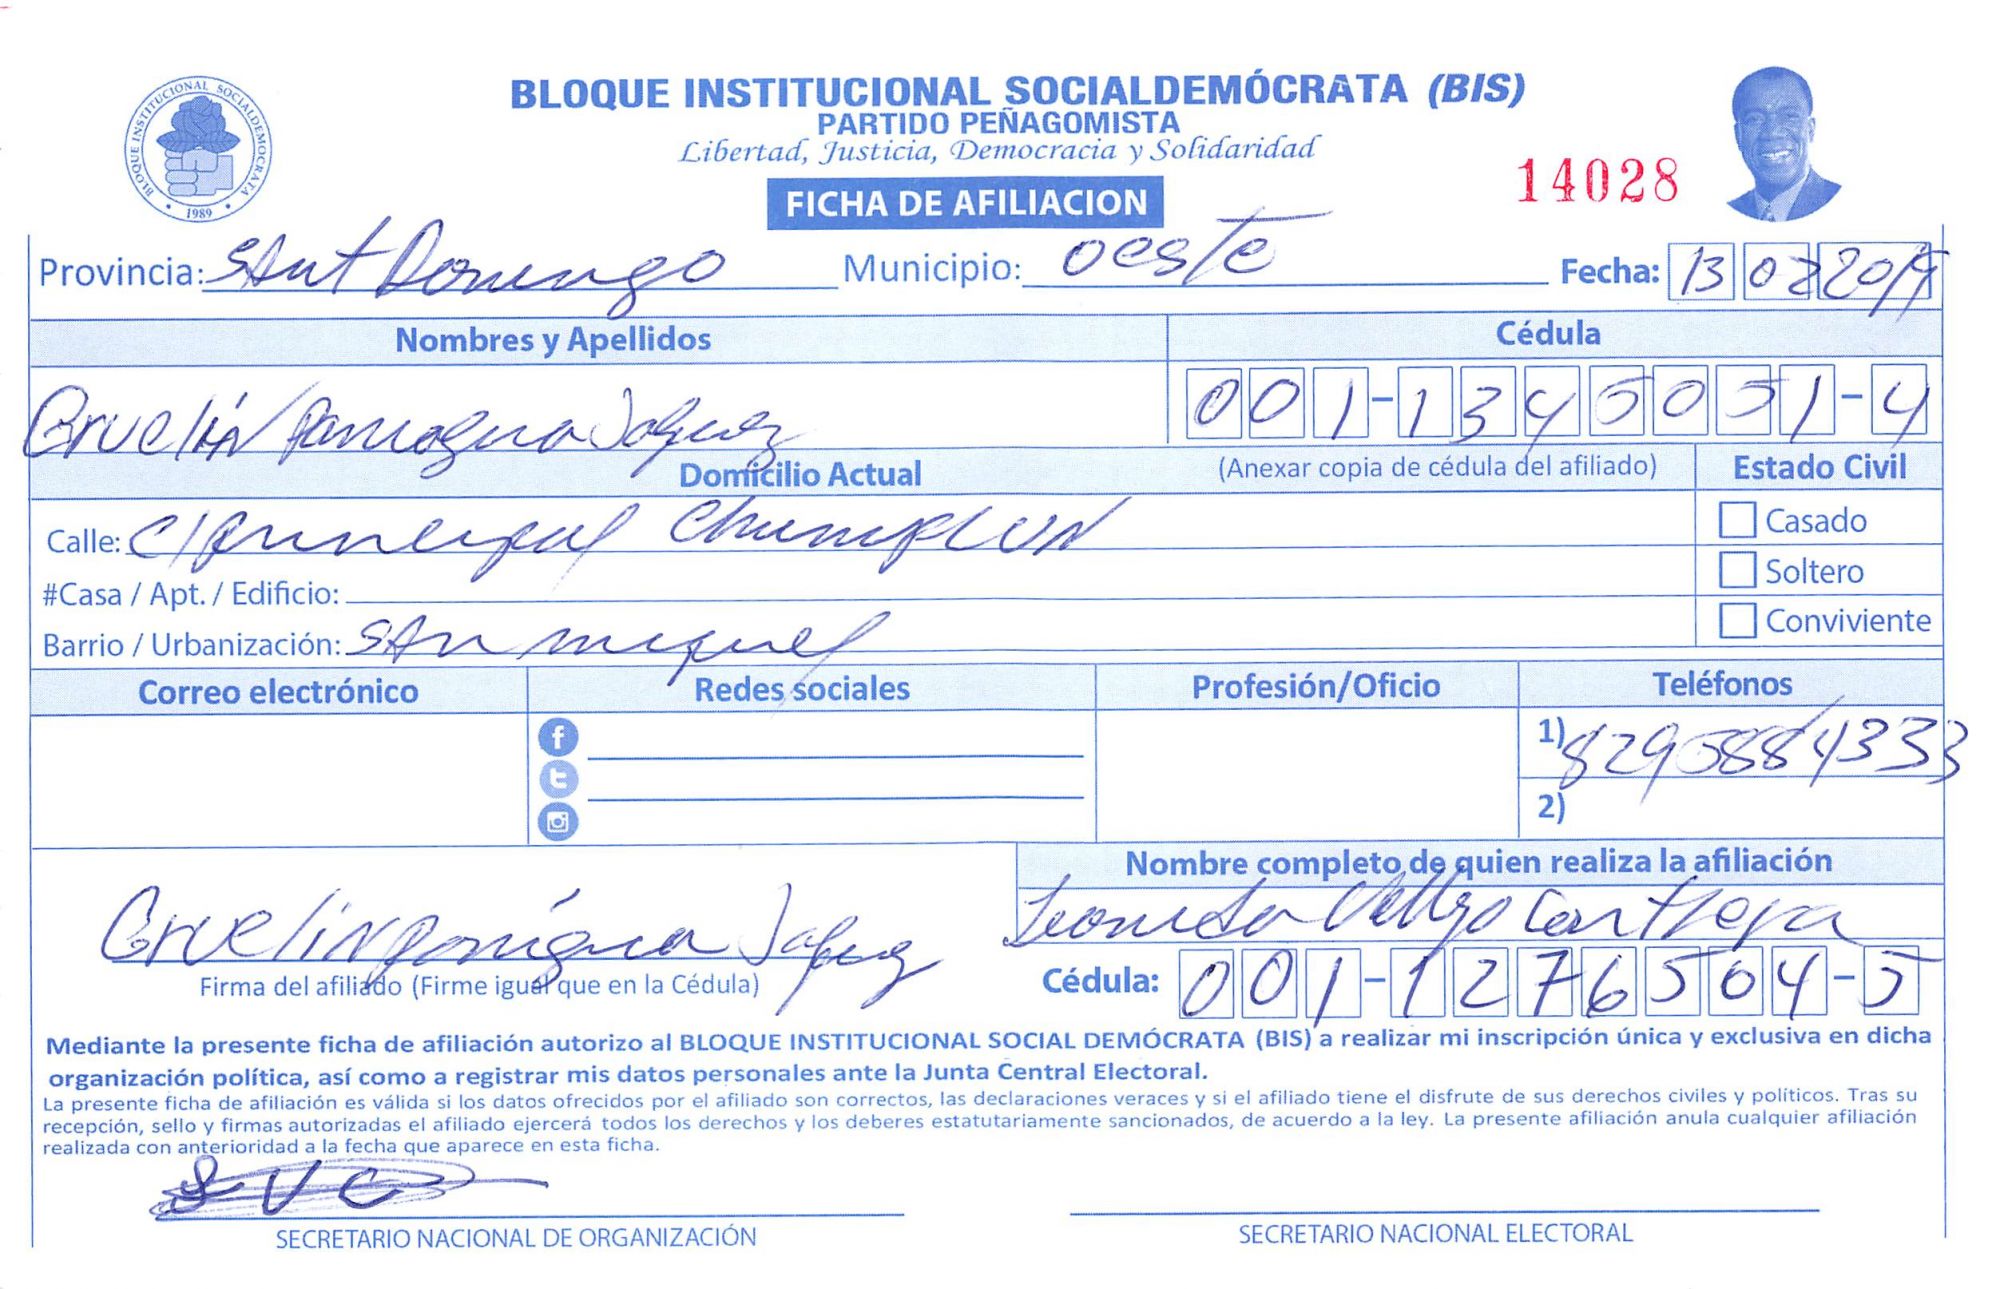 BLOQUE INSTITUCIONAL SOCIALDEMÓCRATA (BIS)
PARTIDO PEÑAGOMISTA
Libertad, Justicia, Democracia y Solidaridad
BLOQUE INSTITUCIONAL SOCIALDEMOCRATA
1989
14028
FICHA DE AFILIACION
Provincia: Sant Domingo Municipio: oeste Fecha: 13 02 2019
Nombres y Apellidos Cédula
Jaquez 001-1345051-4
Domicilio Actual (Anexar copia de cédula del afiliado) Estado Civil
Calle: C/ principal Casado
#Casa / Apt. / Edificio: Soltero
Barrio / Urbanización: San miguel Conviviente
Correo electrónico Redes sociales Profesión/Oficio Teléfonos
1) 8295884333
2)
Nombre completo de quien realiza la afiliación
Jaquez
Firma del afiliado (Firme igual que en la Cédula) Cédula: 001-1276504-5
Mediante la presente ficha de afiliación autorizo al BLOQUE INSTITUCIONAL SOCIAL DEMÓCRATA (BIS) a realizar mi inscripción única y exclusiva en dicha
organización política, así como a registrar mis datos personales ante la Junta Central Electoral.
La presente ficha de afiliación es válida si los datos ofrecidos por el afiliado son correctos, las declaraciones veraces y si el afiliado tiene el disfrute de sus derechos civiles y políticos. Tras su
recepción, sello y firmas autorizadas el afiliado ejercerá todos los derechos y los deberes estatutariamente sancionados, de acuerdo a la ley. La presente afiliación anula cualquier afiliación
realizada con anterioridad a la fecha que aparece en esta ficha.
SECRETARIO NACIONAL DE ORGANIZACIÓN SECRETARIO NACIONAL ELECTORAL